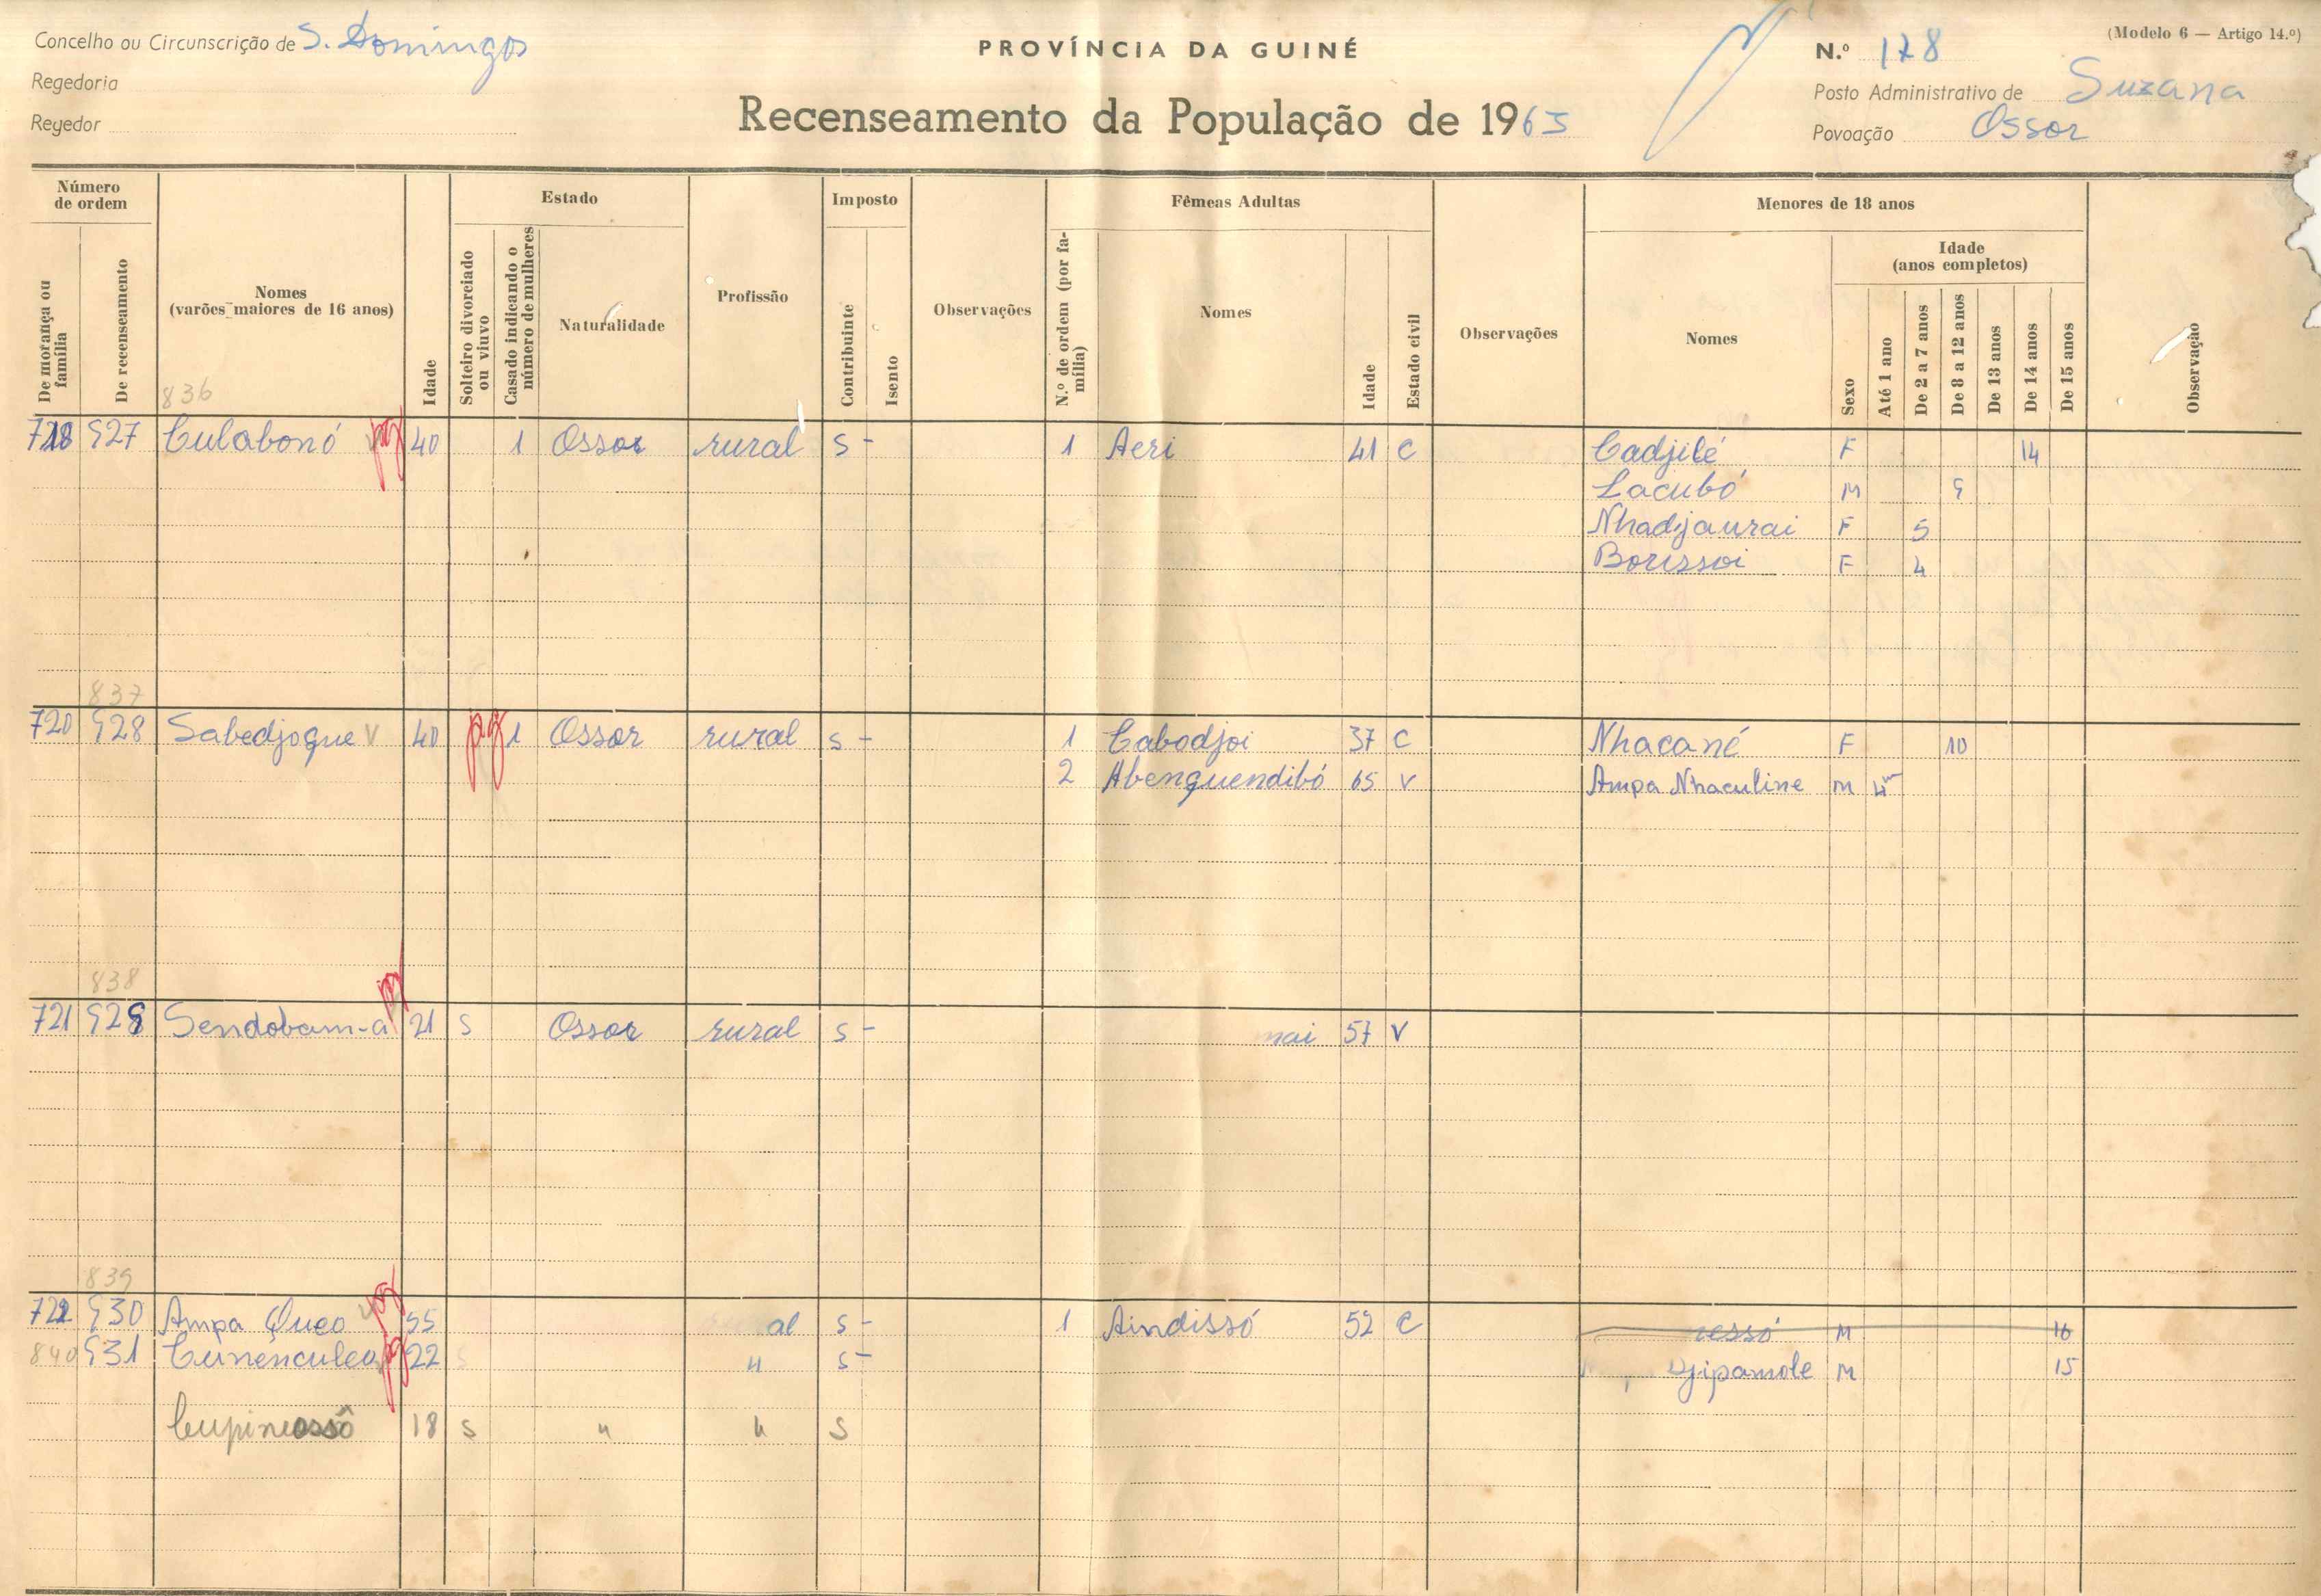 Concelho ou Circunscrição de S. Domingos
Regedoria
Regedor
PROVÍNCIA DA GUINÉ
Recenseamento da População de 1963
(Modelo 6 — Artigo 14.º)
N.º 178
Posto Administrativo de Suzana
Povoação Ossor
Número de ordem
De morança ou família
De recenseamento
Nomes
(varões maiores de 16 anos)
Idade
Estado
Solteiro divorciado ou viuvo
Casado indicando o número de mulheres
Naturalidade
Profissão
Imposto
Contribuinte
Isento
Observações
Fêmeas Adultas
N.º de ordem (por família)
Nomes
Idade
Estado civil
Observações
Menores de 18 anos
Nomes
Sexo
Idade
(anos completos)
Até 1 ano
De 2 a 7 anos
De 8 a 12 anos
De 13 anos
De 14 anos
De 15 anos
Observação
836
718 927 Culabonó pg 40 1 Ossor rural S - 1 Aeri 41 C Cadjilé F 14
Lacubó M 9
Nhadjaurai F 5
Borissoi F 4
837
720 928 Sabedjogue V 40 pg 1 Ossor rural S - 1 Cabodjoi 37 C Nhacané F 10
2 Abenquendibó 65 V Ampa Nhaculine M 4m
838
721 929 Sendobam-a pg 21 S Ossor rural S - mai 57 V
839
722 930 Ampa Queo pg 55 al S - 1 Aindissó 52 C M 16
840 931 Cunenculeo pg 22 S " S - Djipamole M 15
18 S " " S